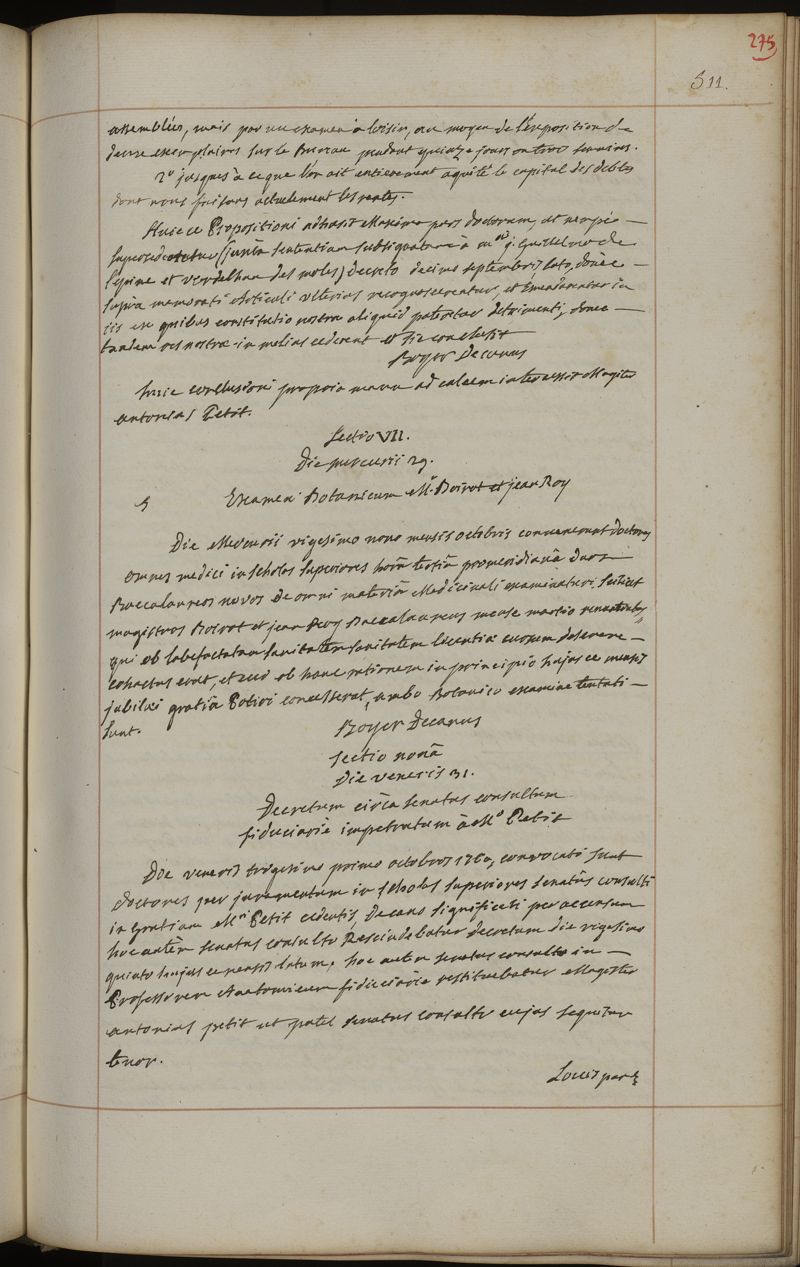 275
511.
assemblées, mais par un examen à loisir, au moyen de l'exposition de
deux exemplaires sur le Bureau pendant quinze jours ou trois semaines.
2° jusques à ce que l'on ait entierement aquité le capital des debtes
dont nous faisons actuellement les rentes.
Huicce Propositioni adhæsit Maxima pars doctorum, ut nempè
supersederetur (juxtà sententiam subsignatam à m. j. Guillelmo de
l'epine et verdelhan des moles) decreto decimo septembris lato, donèc
suprà memorati Articuli ulterius recognoscerentur, et Emendarentur in
iis ex quibus constitutio nostra aliquid pateretur detrimenti, donec
tandem res nostræ in melius cederent et sic conclusit
Boyer Decanus
huic conclusioni propria manu ad calcem intercessit Magister
antonius Petit.
Sectio VII.
Die mercurii 29.
Examen Botanicum M. Boirot et jean Roy
Die Mercurii vigesimo nono mensis octobris convenerunt doctores
omnes medici in scholas superiores horâ tertiâ promeridianâ duos
Baccalaureos novos de omni materiâ Medicinali examinaturi, scilicet
magistros Boirot et jean Roy Baccalaureus mense martio
qui ob labefactatam sanitatem licentiæ cursum deserere
cohactus erat, et cui ob hanc rationem in principio hujusce mensis
jubilæi gratiâ Potiri concesserat, ambo Botanico examine tentati
sunt.
Boyer Decanus
sectio nonâ
Die veneris 31.
Decretum circà senatus consultum
fiduciariè impetratum à M. Petit
Die veneris trigesimo primo octobris 1760, convocati sunt
doctores per juramentum in scholas superiores senatûs consulti
in Gratiam M. Petit cedentis, Decano significati per accensum
hoc autèm senatus consulto Rescindebatur decretum die vigesimo
quinto hujusce mensis latum, hoc autem senatus consulto in
Professorem Anatomicum fiduciariè restituebatur Magister
antonius petit ut patet senatus consulto cujus sequitur
tenor.
Louis par